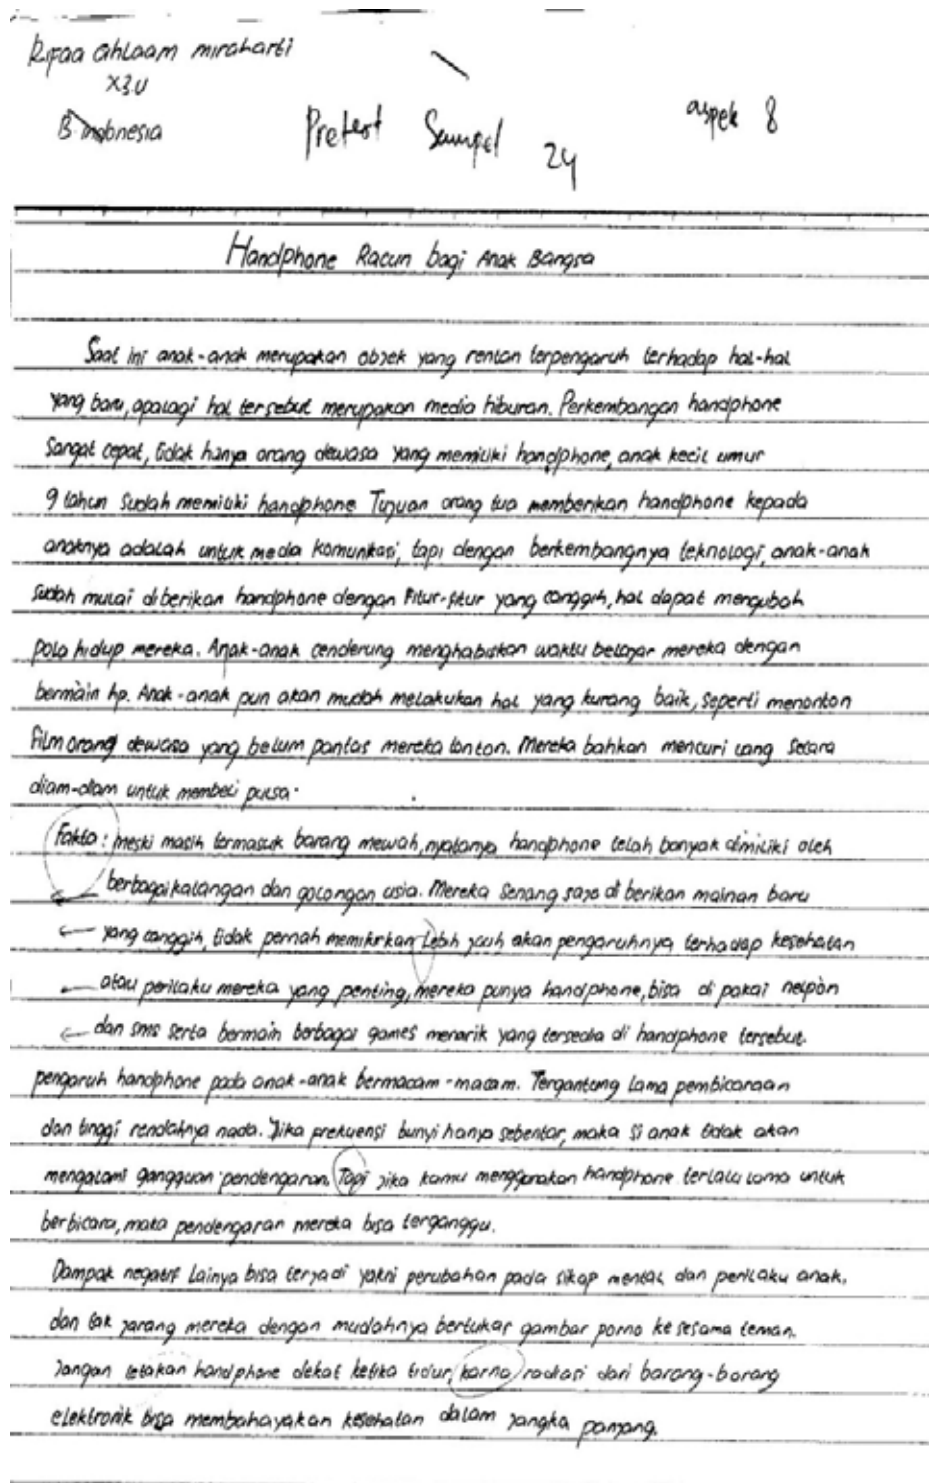 Rifaa ahlaam miraharti
X3U
B. indonesia
Pretest Sampel 24
aspek 8
Handphone Racun bagi Anak Bangsa
Saat ini anak-anak merupakan objek yang rentan terpengaruh terhadap hal-hal
yang baru, apalagi hal tersebut merupakan media hiburan. Perkembangan handphone
sangat cepat, tidak hanya orang dewasa yang memiliki handphone, anak kecil umur
9 tahun sudah memiliki handphone Tujuan orang tua memberikan handphone kepada
anaknya adalah untuk media komunikasi, tapi dengan berkembangnya teknologi, anak-anak
sudah mulai diberikan handphone dengan Fitur-fitur yang canggih, hal dapat mengubah
pola hidup mereka. Anak-anak cenderung menghabiskan waktu belajar mereka dengan
bermain hp. Anak-anak pun akan mudah melakukan hal yang kurang baik, seperti menonton
film orang dewasa yang belum pantas mereka tonton. Mereka bahkan mencuri uang secara
diam-diam untuk membeli pulsa.
Fakta : meski masih termasuk barang mewah, nyatanya handphone telah banyak dimiliki oleh
berbagai kalangan dan golongan usia. Mereka senang saja di berikan mainan baru
yang canggih, tidak pernah memikirkan lebih jauh akan pengaruhnya terhadap kesehatan
atau perilaku mereka yang penting, mereka punya handphone, bisa di pakai nelpon
dan sms serta bermain berbagai games menarik yang tersedia di handphone tersebut.
pengaruh handphone pada anak-anak bermacam-macam. Tergantung lama pembicaraan
dan tinggi rendahnya nada. Jika prekuensi bunyi hanya sebentar, maka si anak tidak akan
mengalami gangguan pendengaran. Tapi jika kamu menggunakan handphone terlalu lama untuk
berbicara, maka pendengaran mereka bisa terganggu.
Dampak negatif lainya bisa terjadi yakni perubahan pada sikap mental dan perilaku anak.
dan tak jarang mereka dengan mudahnya bertukar gambar porno ke sesama teman.
Jangan letakan handphone dekat ketika tidur, karna radiasi dari barang-barang
elektronik bisa membahayakan kesehatan dalam jangka panjang.